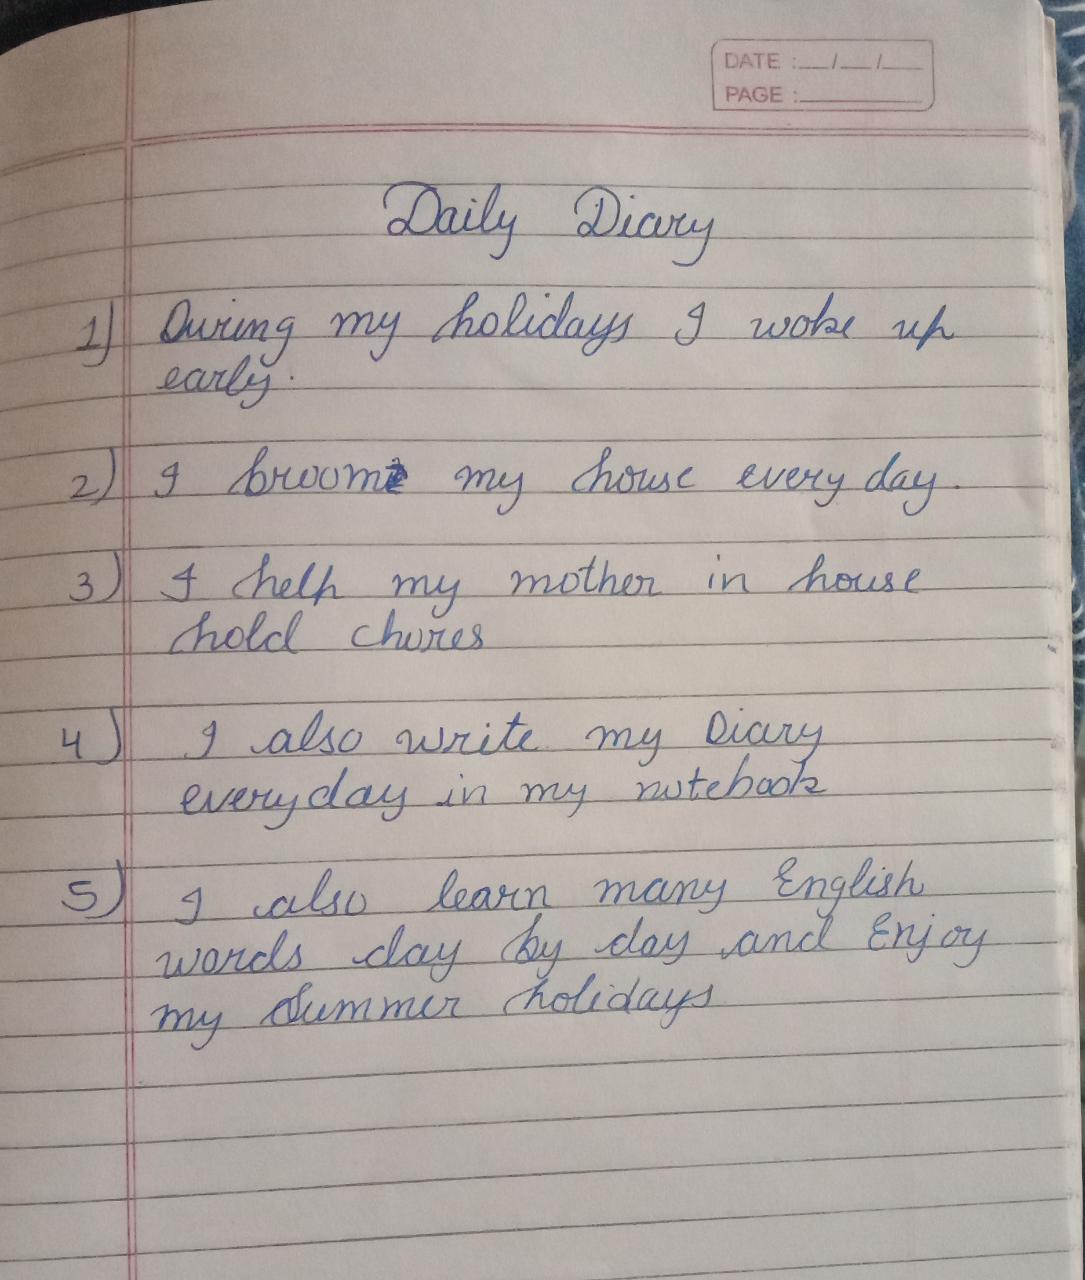 DATE : __/__/__
PAGE : ______
Daily Diary
1) During my holidays I woke up
early.
2) I broom my house every day.
3) I help my mother in house
hold chores
4) I also write my Diary
everyday in my notebook
5) I also learn many English
words day by day and Enjoy
my Summer holidays